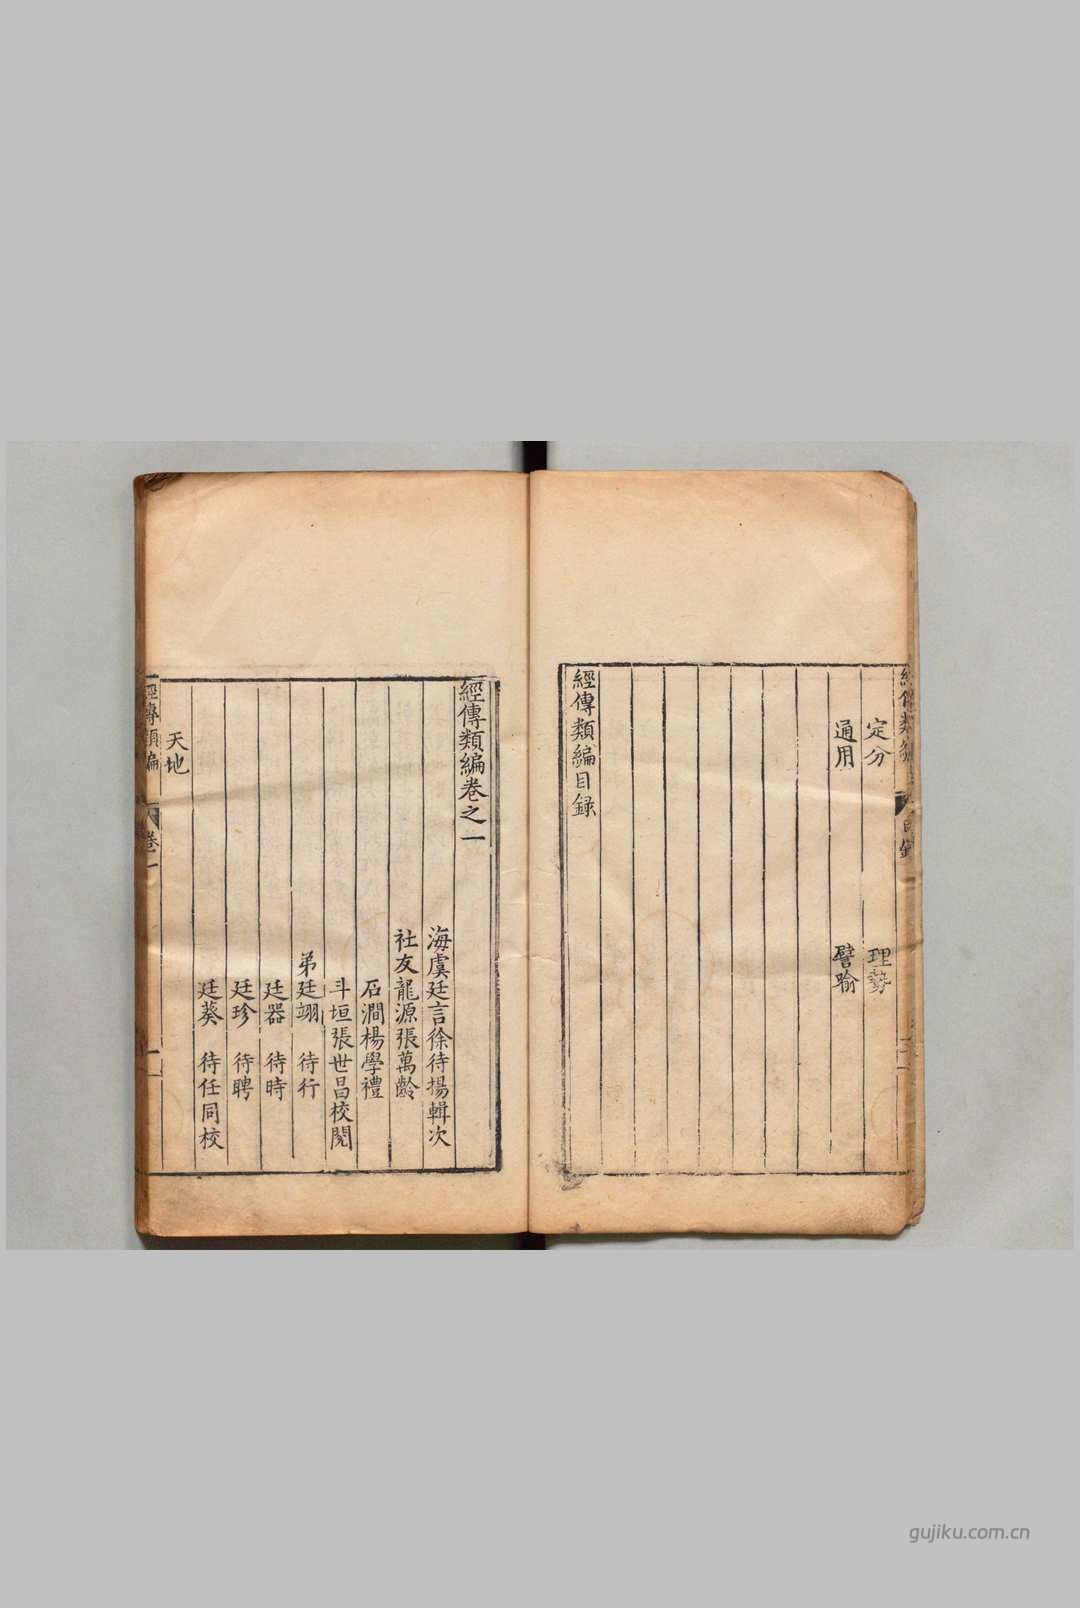 定分
理勢
通用
譬喻
經傳類編目録
經傳類編卷之一
海虞廷言徐待揚輯次
社友龍源張萬齡
石澗楊學禮
斗垣張世昌校閱
弟廷翊 待行
廷器 待時
廷珍 待聘
廷葵 待任同校
天地
經傳類編
卷一
一
gujiku.com.cn